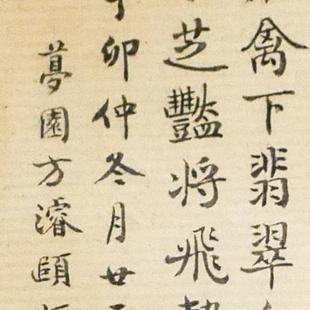 禽下翡翠
芝豔将飛
卯仲冬月廿
夢園方濬頤